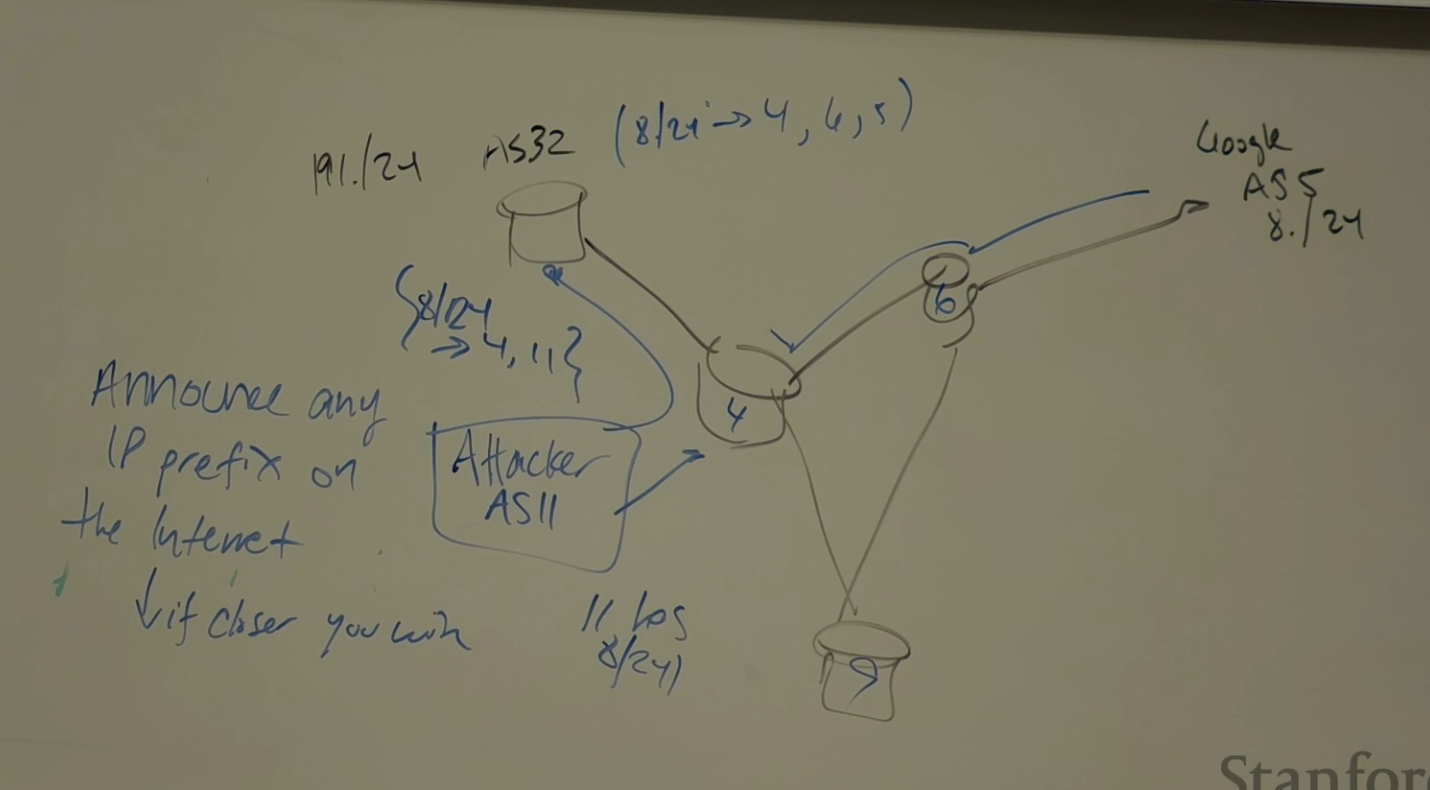 191./24 AS32 (8/24 → 4, 6, 5)
Google
AS5
8./24
6
{8/24
→ 4, 11}
4
Announce any
IP prefix on
the Internet
↓ if closer you win
Attacker
AS11
11 has
8/24)
9
Stanfor